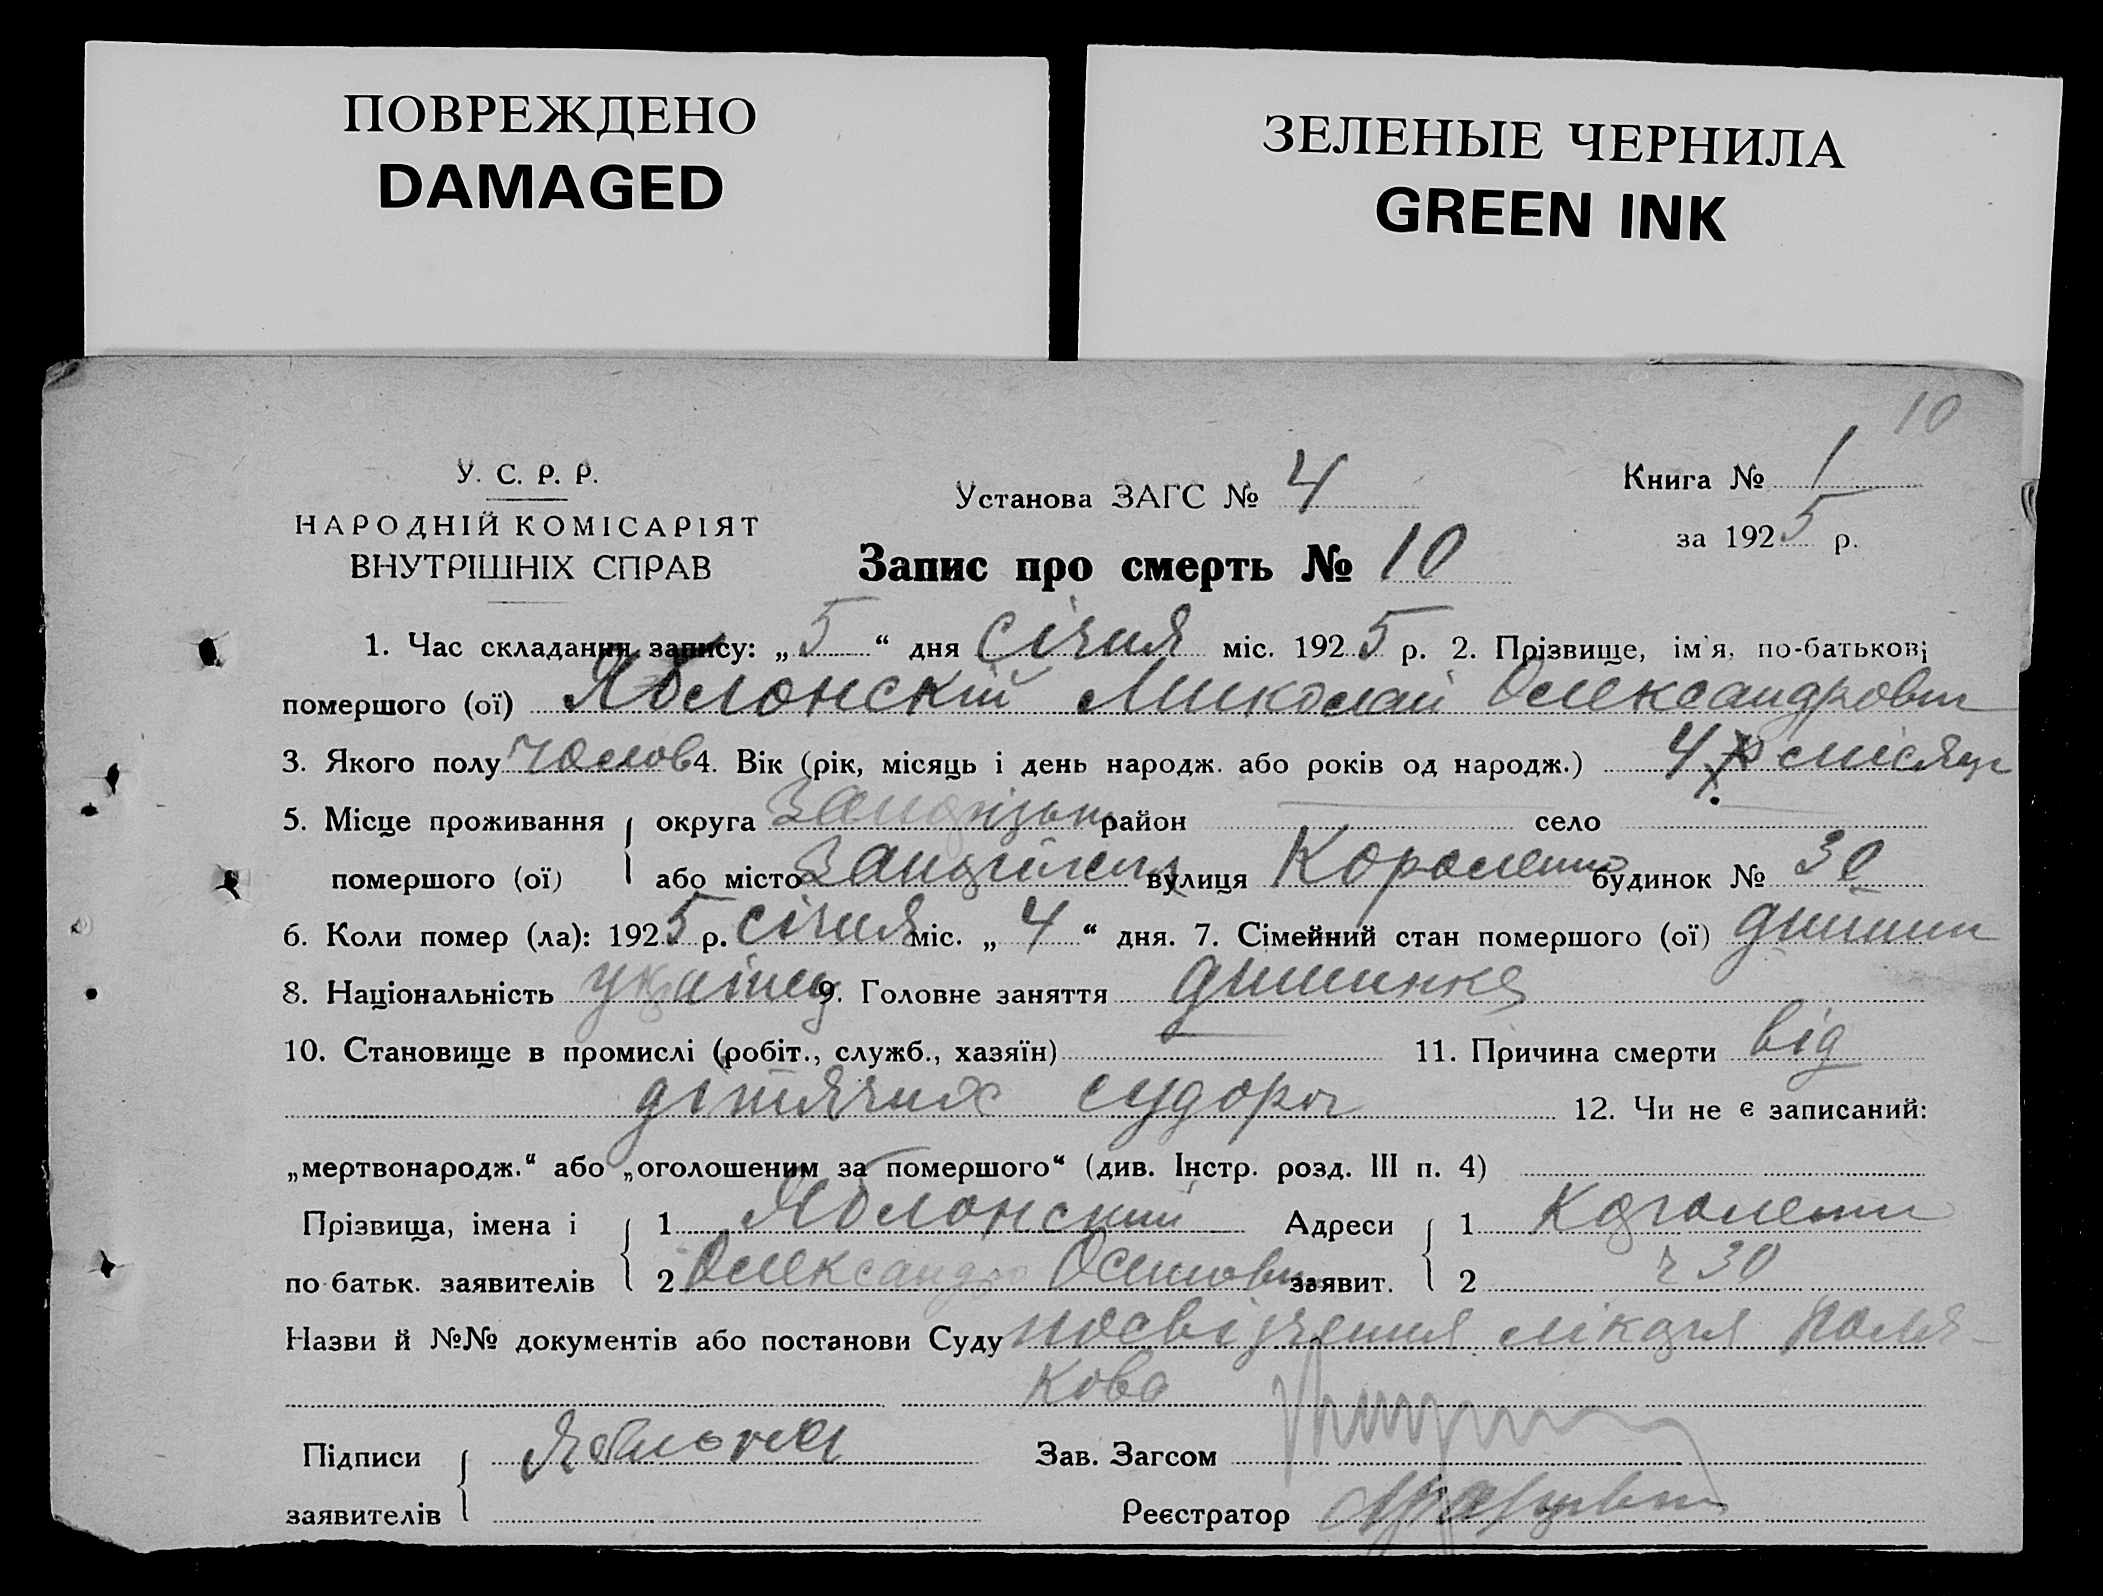 ПОВРЕЖДЕНО
DAMAGED
ЗЕЛЕНЫЕ ЧЕРНИЛА
GREEN INK
10
У. С. Р. Р.
НАРОДНІЙ КОМІСАРІЯТ
ВНУТРІШНІХ СПРАВ
Установа ЗАГС № 4
Запис про смерть № 10
Книга № 1
за 1925 р.
1. Час складання запису: „5“ дня Січня міс. 1925 р. 2. Прізвище, ім'я, по-батькові
помершого (ої) Яблонскій Миколай Олександрович
3. Якого полу чолов 4. Вік (рік, місяць і день народж. або років од народж.) 4 місяці
5. Місце проживання округа район село
помершого (ої) або місто вулиця Короленко будинок № 30
6. Коли помер (ла): 1925 р. січня міс. „4“ дня. 7. Сімейний стан помершого (ої)
8. Національність українец 9. Головне заняття
10. Становище в промислі (робіт., служб., хазяїн) 11. Причина смерти від
дітячих судорог 12. Чи не є записаний:
„мертвонародж.“ або „оголошеним за помершого“ (див. Інстр. розд. III п. 4)
Прізвища, імена і 1 Яблонский Адреси 1
по батьк. заявителів 2 Олександр Осипович заявит. 2 ч 30
Назви й №№ документів або постанови Суду посвідчення лікаря Поля-
кова
Підписи
заявителів
Зав. Загсом
Реєстратор